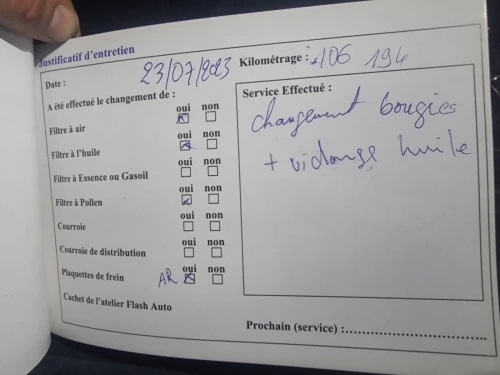 Justificatif d'entretien
Date : 23/07/2023 Kilométrage : 106 194
A été effectué le changement de :
oui non
Filtre à air
oui non
Filtre à l'huile
oui non
Filtre à Essence ou Gasoil
oui non
Filtre à Pollen
oui non
Courroie
oui non
Courroie de distribution
oui non
Plaquettes de frein AR
Cachet de l'atelier Flash Auto
Service Effectué :
changement bougies
+ vidange huile
Prochain (service) :